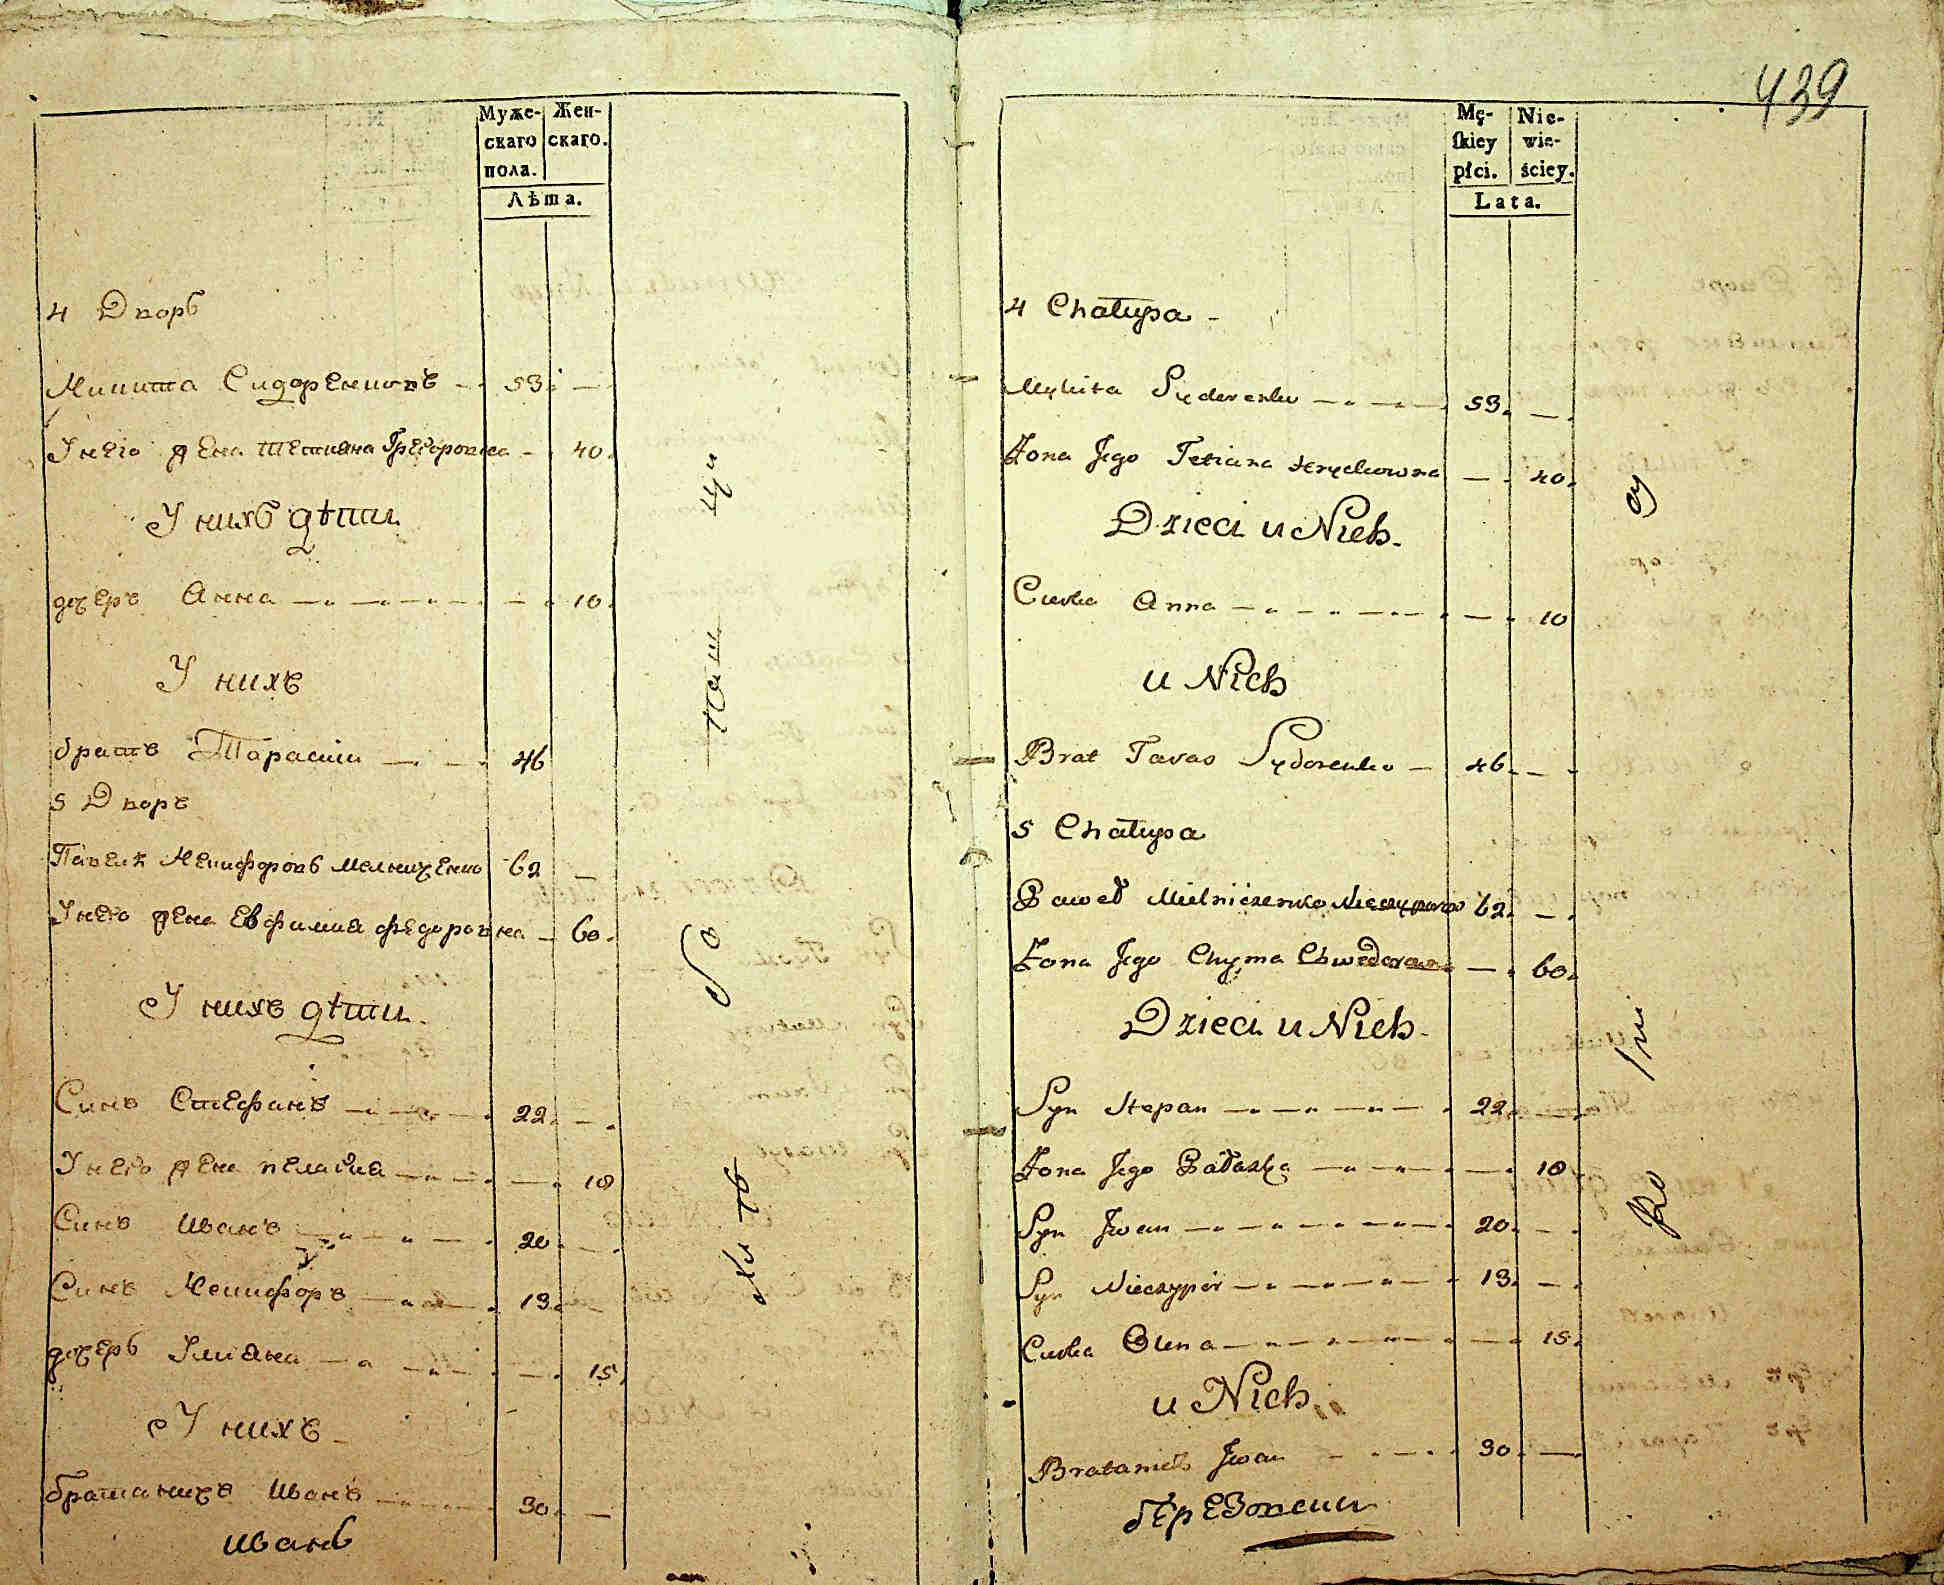 Муже-
скаго
пола.
Жен-
скаго.
Лѣта.
4 Дворъ
Никита Сидоренковъ 53
У него жена Тетияна Григоровна 40
У нихъ дѣти
дочерь Анна 10
У нихъ
братъ Тарасий 46
5 Дворъ
Павелъ Никифоровъ Мельниченко 62
У него жена Евфимия Федоровна 60
У нихъ дѣти
Синъ Стефанъ 22
У него жена Пелагия 18
Синъ Иванъ 20
Синъ Никифоръ 13
дочерь Улияна 15
У нихъ
братаничъ Иванъ 30
Иванъ
439
Mę-
skiey
płci.
Nie-
wie-
ściey.
Lata.
4 Chałupa
Mykita Sydorenko 53
Żona Jego Tetiana Hryckowna 40
Dzieci u Nich
Curka Anna 10
u Nich
Brat Taras Sydorenko 46
5 Chałupa
Paweł Mielniczenko 62
Żona Jego Chyma Chwedorowna 60
Dzieci u Nich
Syn Stepan 22
Żona Jego Pałaszka 18
Syn Jwan 20
Syn Nieczypór 13
Curka Olena 15
u Nich
Bratanich Jwan 30